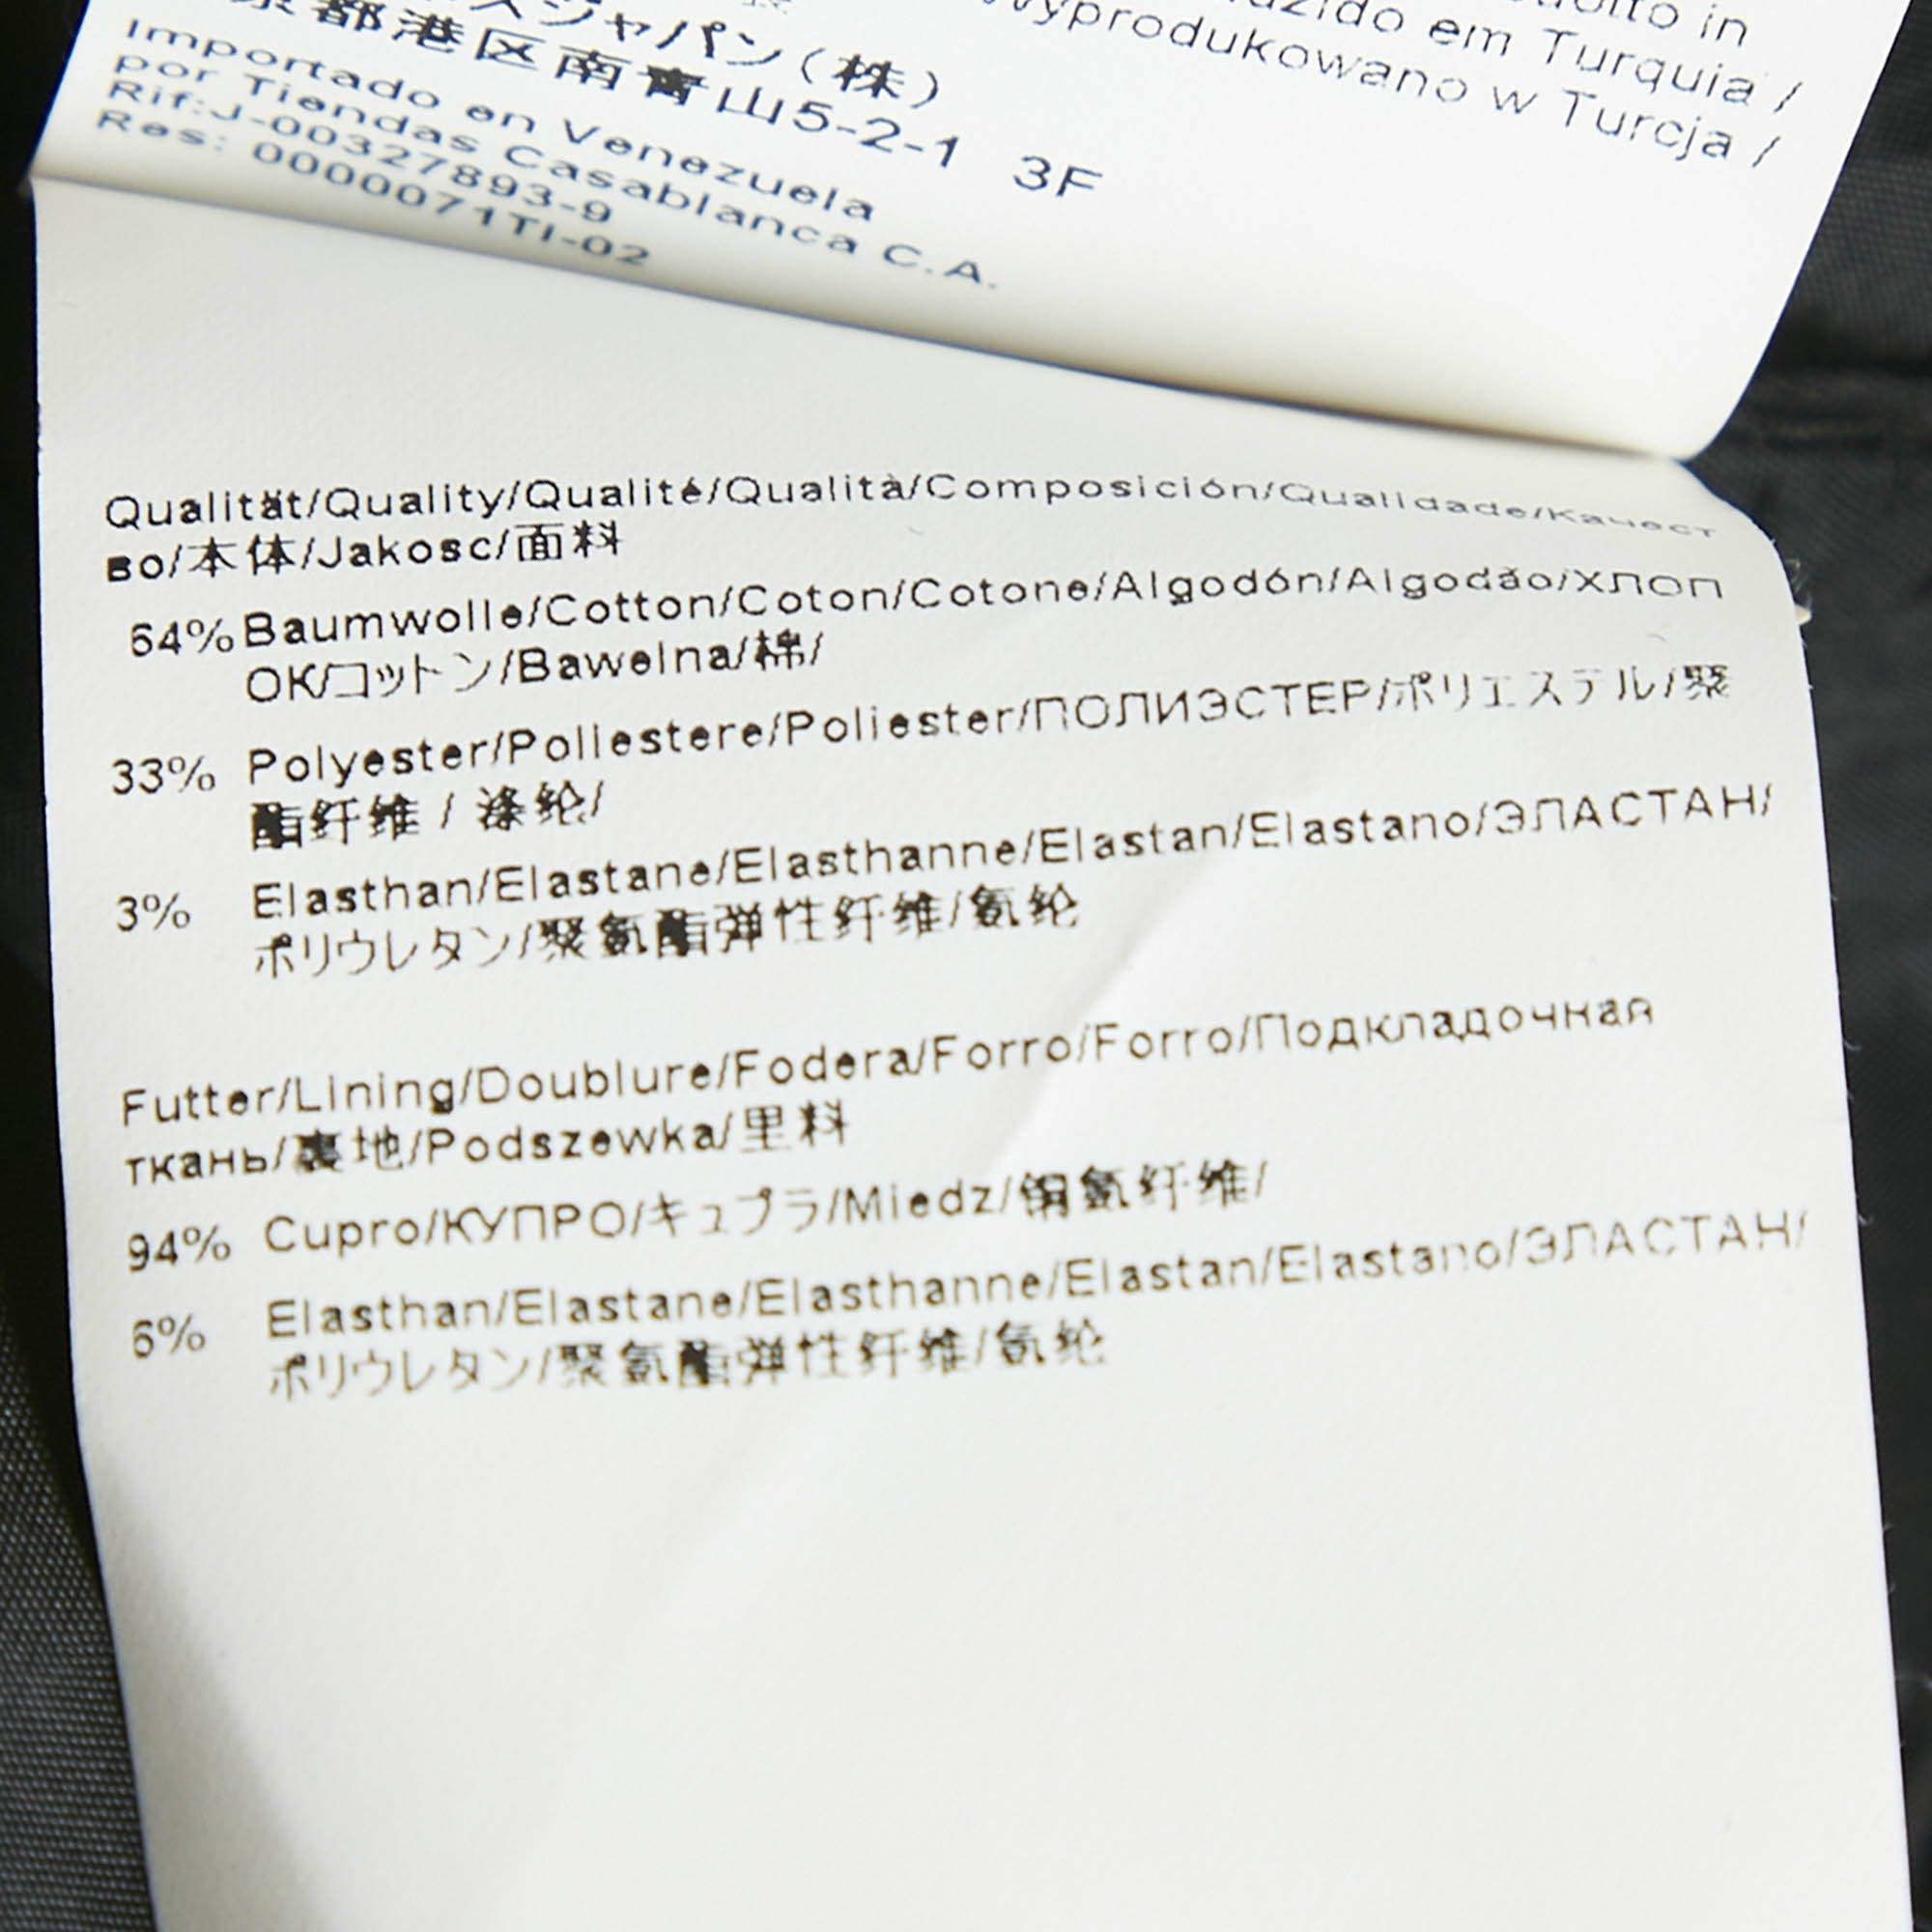 スジャパン(株)
京都港区南青山5-2-1 3F
Importado en Venezuela
por Tiendas Casablanca C.A.
Rif:J-00327893-9
Res: 0000071TI-02
in
em Turquia /
Wyprodukowano w Turcja /
Qualität/Quality/Qualité/Qualità/Composición/Qualidade/Качест
во/本体/Jakosc/面料
64% Baumwolle/Cotton/Coton/Cotone/Algodón/Algodão/ХЛОП
ОК/コットン/Bawelna/棉/
33% Polyester/Poliestere/Poliester/ПОЛИЭСТЕР/ポリエステル/聚
酯纤维 / 涤纶/
3% Elasthan/Elastane/Elasthanne/Elastan/Elastano/ЭЛАСТАН/
ポリウレタン/聚氨酯弹性纤维/氨纶
Futter/Lining/Doublure/Fodera/Forro/Forro/Подкладочная
ткань/裏地/Podszewka/里料
94% Cupro/КУПРО/キュプラ/Miedz/铜氨纤维/
6% Elasthan/Elastane/Elasthanne/Elastan/Elastano/ЭЛАСТАН/
ポリウレタン/聚氨酯弹性纤维/氨纶